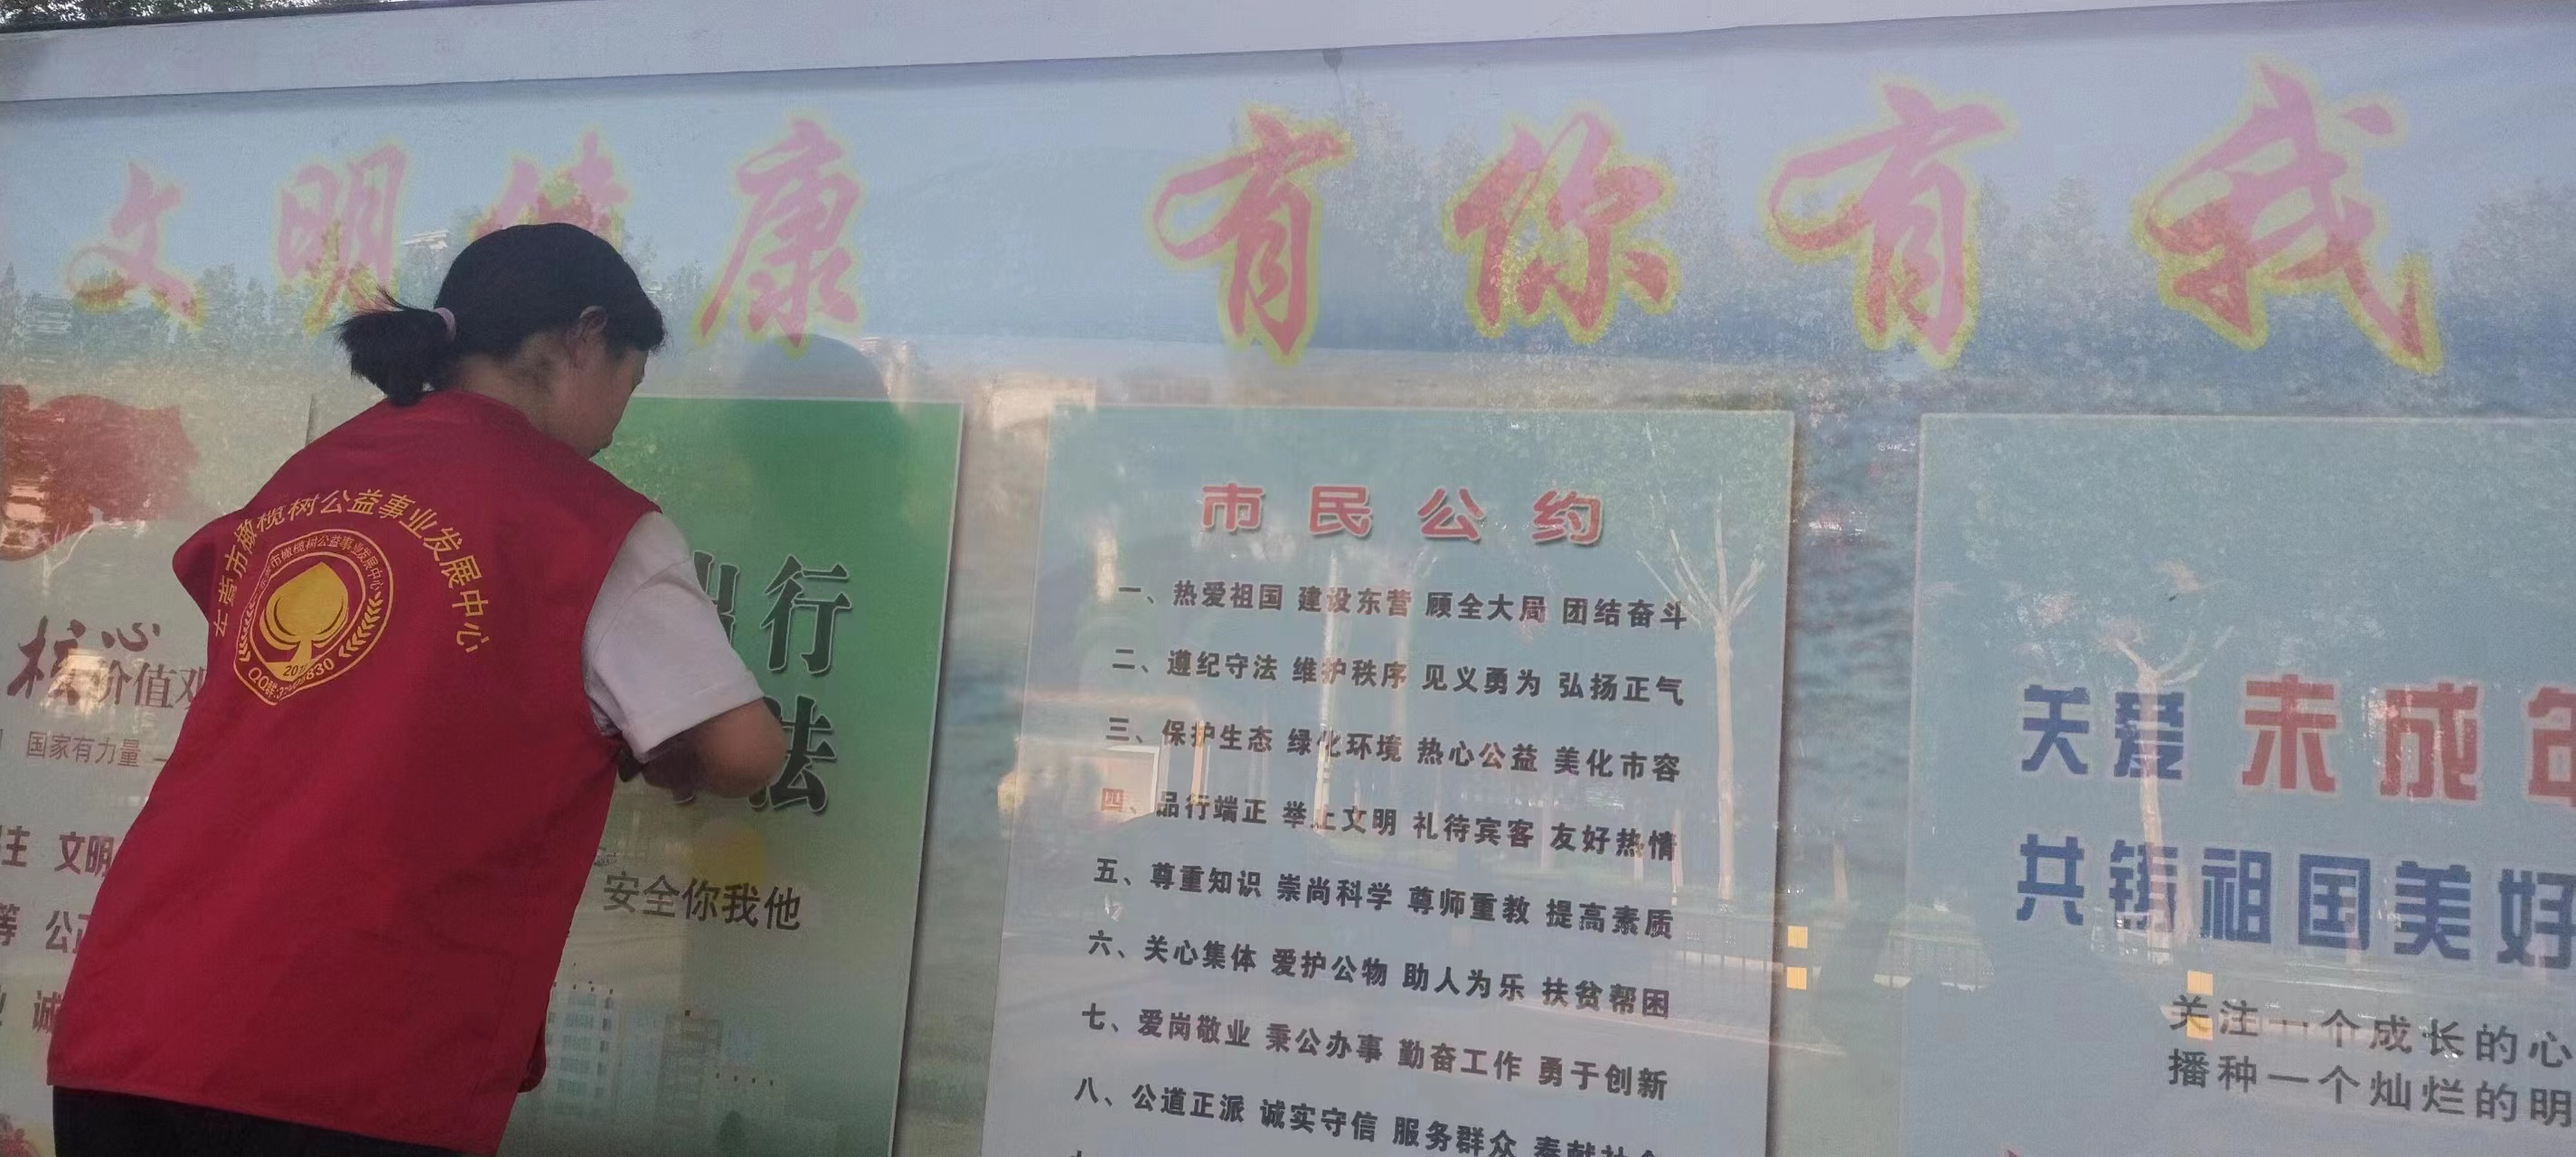 文明健康 有你有我
东营市橄榄树公益事业发展中心
市橄榄树公益事业发展中心
核心
价值观
国家有力量
主 文明
等 公正
诚
出行
法
安全你我他
市民公约
一、热爱祖国 建设东营 顾全大局 团结奋斗
二、遵纪守法 维护秩序 见义勇为 弘扬正气
三、保护生态 绿化环境 热心公益 美化市容
四、品行端正 举止文明 礼待宾客 友好热情
五、尊重知识 崇尚科学 尊师重教 提高素质
六、关心集体 爱护公物 助人为乐 扶贫帮困
七、爱岗敬业 秉公办事 勤奋工作 勇于创新
八、公道正派 诚实守信 服务群众 奉献社会
关爱 未成年
共铸祖国美好
关注一个成长的心
播种一个灿烂的明